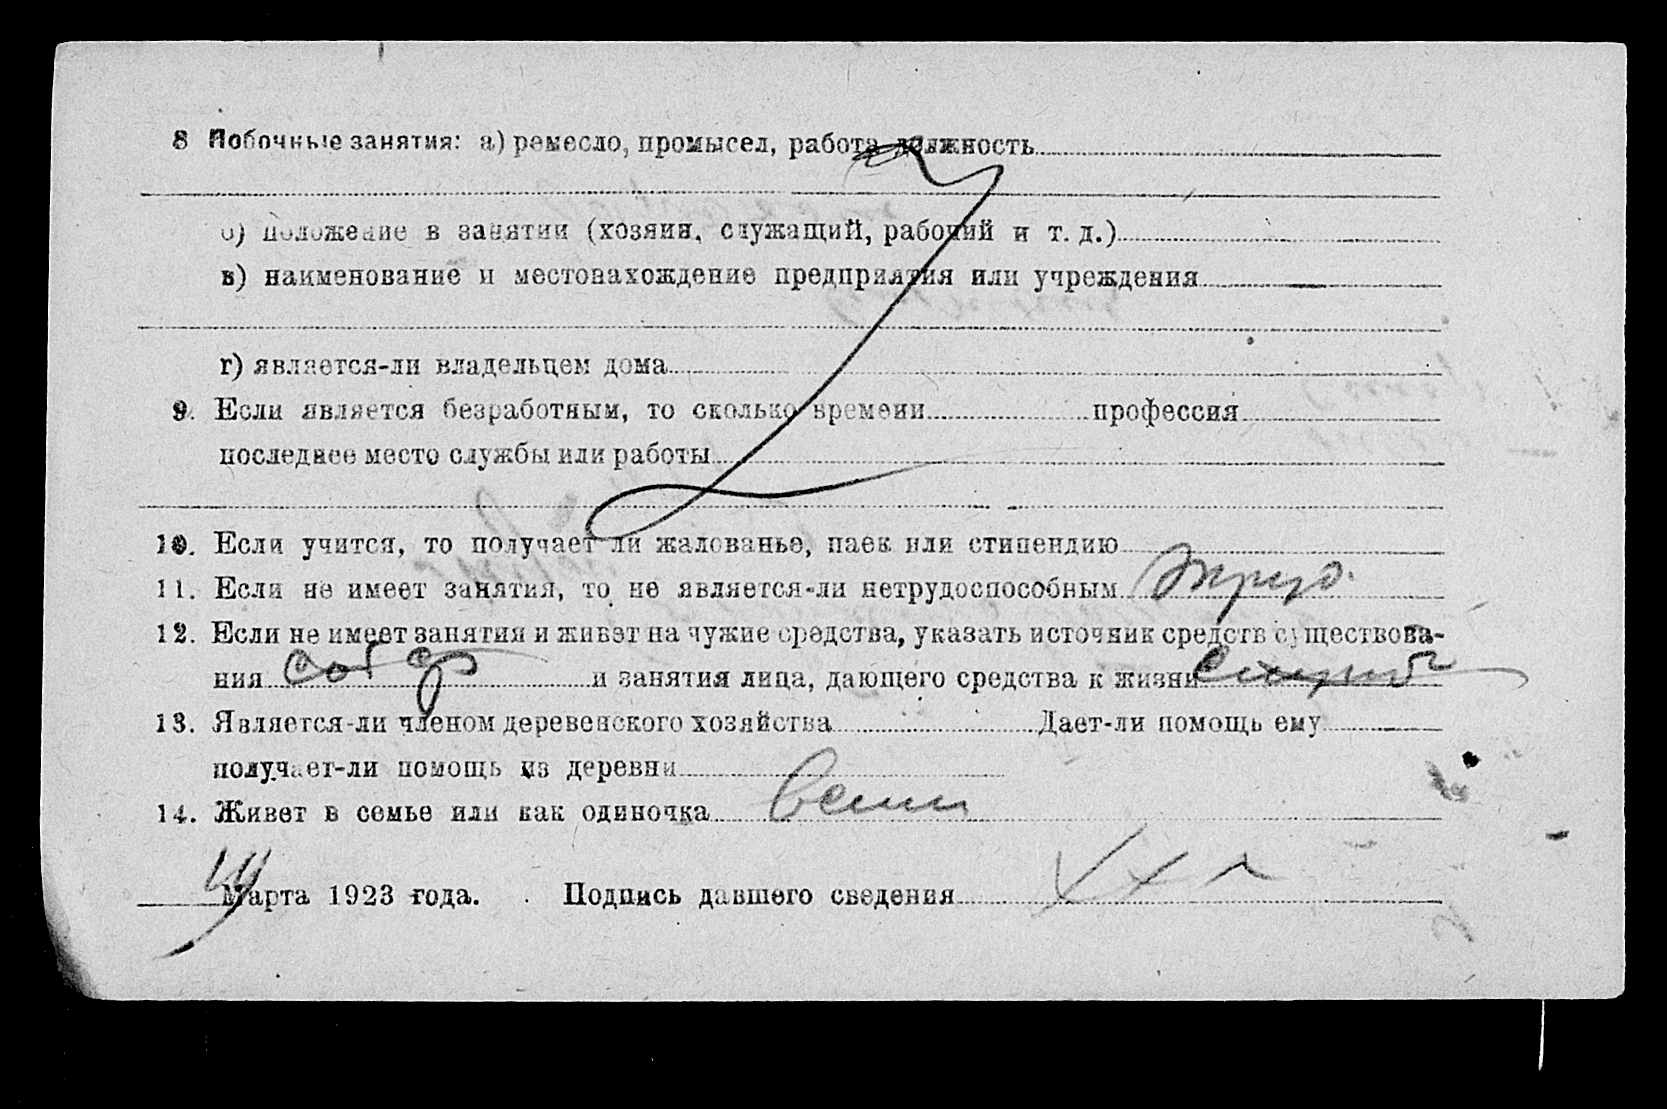 8 Побочные занятия: а) ремесло, промысел, работа должность
б) положение в занятии (хозяин, служащий, рабочий и т. д.)
в) наименование и местонахождение предприятия или учреждения
г) является-ли владельцем дома
9. Если является безработным, то сколько времени профессия
последнее место службы или работы
10. Если учится, то получает ли жалованье, паек или стипендию
11. Если не имеет занятия, то не является-ли нетрудоспособным
12. Если не имеет занятия и живет на чужие средства, указать источник средств существова-
ния соб ср и занятия лица, дающего средства к жизни
13. Является-ли членом деревенского хозяйства Дает-ли помощь ему
получает-ли помощь из деревни
14. Живет в семье или как одиночка
Марта 1923 года. Подпись давшего сведения